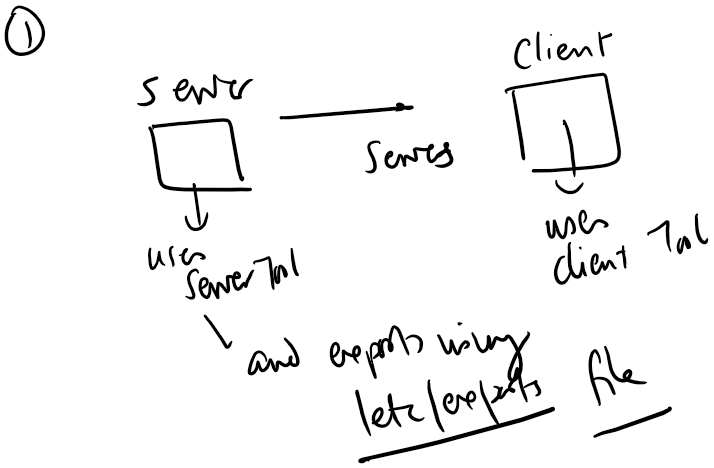 ①
Server
Client
serves
uses
Server Tool
uses
client Tool
and exports using
/etc/exports file